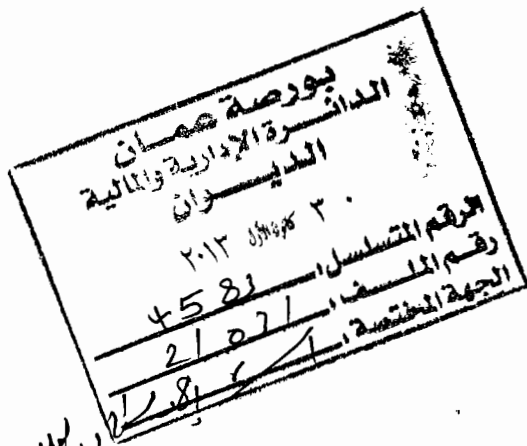 بورصة عمان
الدائرة الإدارية والمالية
الديوان
٣٠ كانون الأول ٢٠١٣
الرقم المتسلسل: 4583
رقم الملف: 21031
الجهة المختصة: